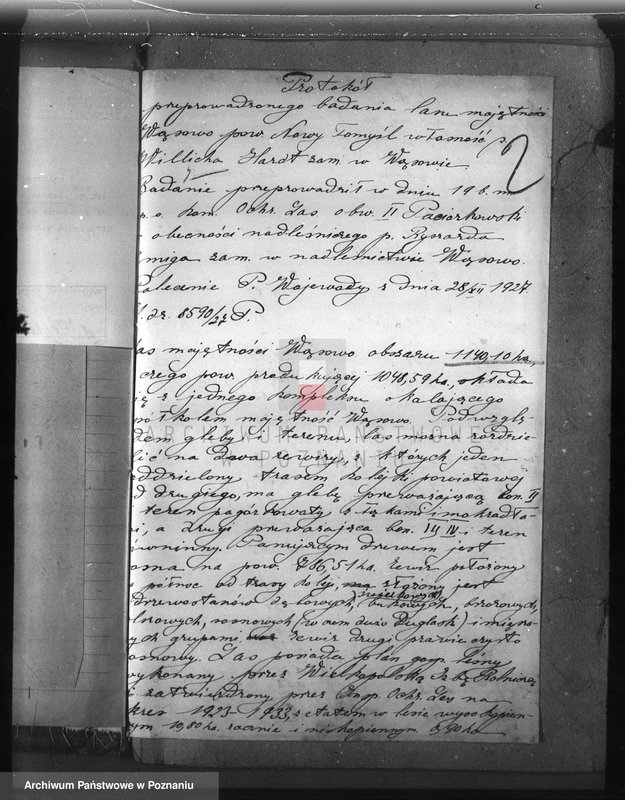 Protokół
przeprowadzonego badania lasu majętności
Wąsowo pow. Nowy Tomyśl własność p.
Willicha Hardt zam. w Wąsowie.
Badanie przeprowadził w dniu 19 b. m.
kom. Ochr. Las. obw. II Paciorkowski
obecności nadleśniczego p. Ryszarda
zam. w nadleśnictwie Wąsowo.
Polecenie P. Wojewody z dnia 28/XII 1927
dz. 8590/27 P.
2
las majętności Wąsowo obszaru 1140,10 ha,
czego pow. produkującej 1048,59 ha, składa
z jednego kompleksu okalającego
kołem majętność Wąsowo. Pod wzglę-
dem gleby i terenu, las można rozdzie-
lić na dwa rewiry, z których jeden
oddzielony trasem kolejki powiatowej
od drugiego, ma glebę przeważającą bon. II
teren pagórkowaty z łąkami i mokradła-
mi, a drugi przeważająca bon. III IV i teren
równinny. Panującym drzewem jest
sosna na pow. 786,51 ha. Rewir położony
północ od trasy kolej, złożony jest
drzewostanów dębowych, świerkowych, bukowych, brzozowych,
olszowych, sosnowych (w nem dużo Duglask) i miesza-
nych grupami Rewir drugi prawie czysto
sosnowy. Las posiada plan gosp. leśny
wykonany przez Wielkopolską Izbę Rolniczą
i zatwierdzony przez Insp. Ochr. Las na
okres 1923-1933, z etatem w lesie wysokopien-
nym 10,80 ha. rocznie i niskopiennym 0,90 ha
ARCHIWUM PAŃSTWOWE
W POZNANIU
Archiwum Państwowe w Poznaniu